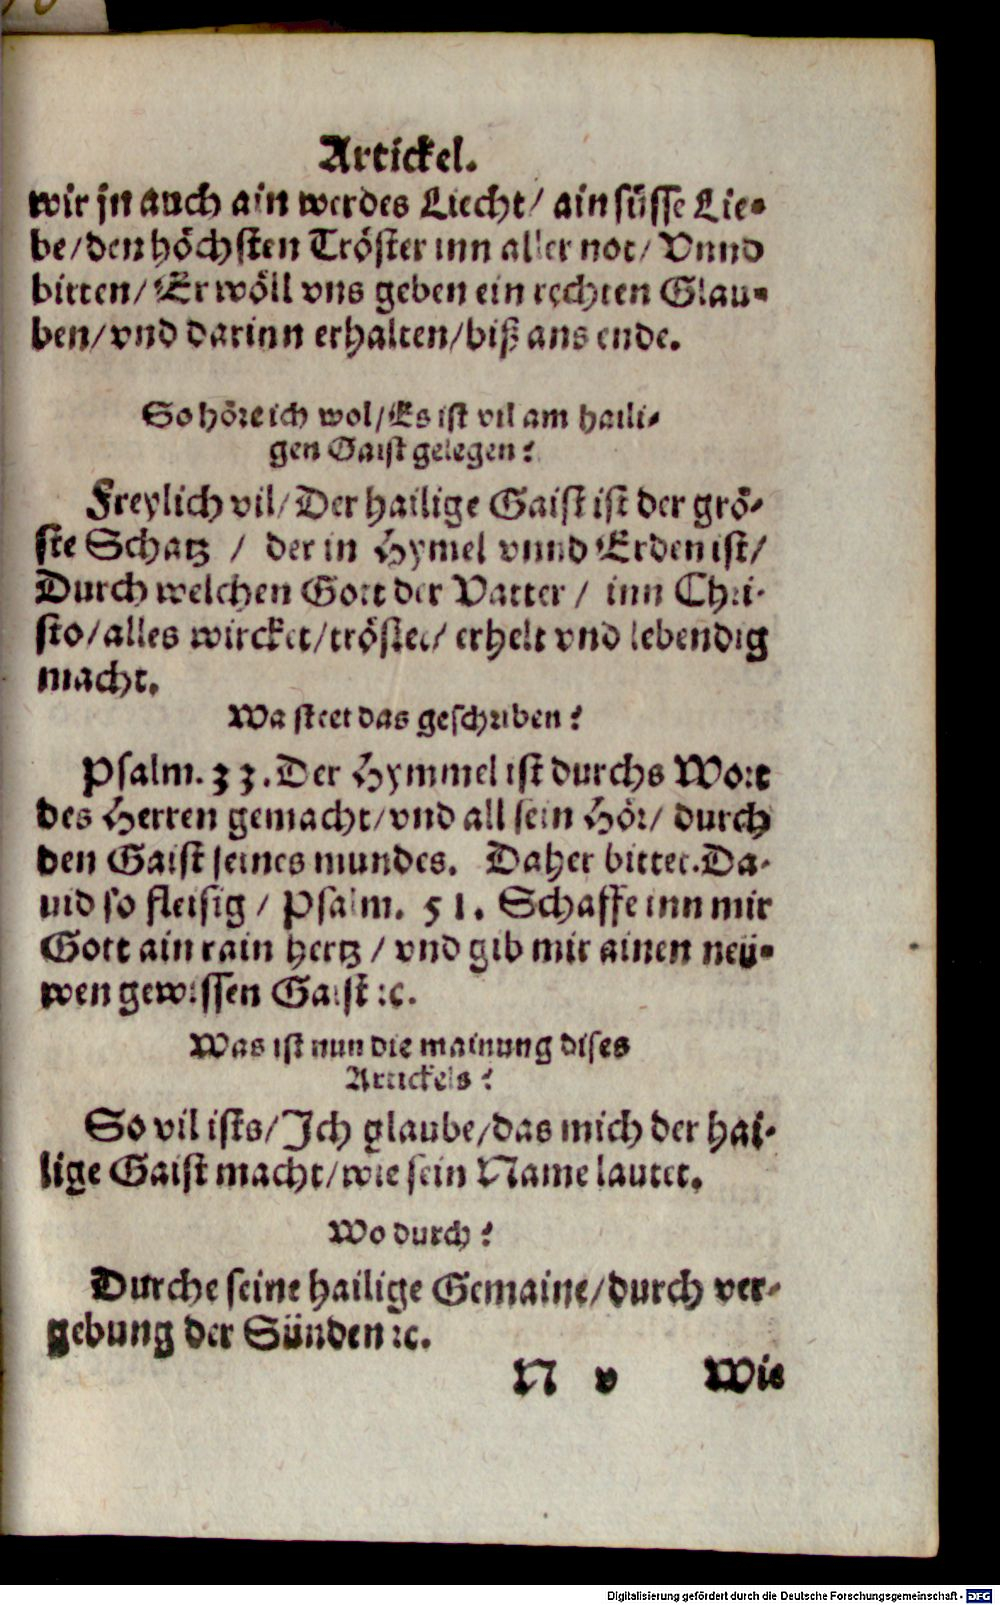 Artickel.
wir jn auch ain werdes Liecht/ ain süsse Lie-
be/den höchsten Tröster inn aller not/ Vnnd
bitten/ Er wöll vns geben ein rechten Glau-
ben/vnd darinn erhalten/biß ans ende.
So höre ich wol/Es ist vil am haili-
gen Gaist gelegen?
Freylich vil/Der hailige Gaist ist der grö-
ste Schatz / der in Hymel vnnd Erden ist/
Durch welchen Gott der Vatter / inn Chri-
sto/alles wircket/tröstet/ erhelt vnd lebendig
macht.
Wa steet das geschriben?
Psalm. 33. Der Hymmel ist durchs Wort
des Herren gemacht/vnd all sein Hör/ durch
den Gaist seines mundes. Daher bittet. Da-
uid so fleisig / Psalm. 51. Schaffe inn mir
Gott ain rain hertz / vnd gib mir ainen neü-
wen gewissen Gaist ꝛc.
Was ist nun die mainung dises
Artickels?
So vil ists/Ich glaube/das mich der hai-
lige Gaist macht/wie sein Name lautet.
Wo durch?
Durche seine hailige Gemaine/durch ver-
gebung der Sünden ꝛc.
N v Wie
Digitalisierung gefördert durch die Deutsche Forschungsgemeinschaft - DFG